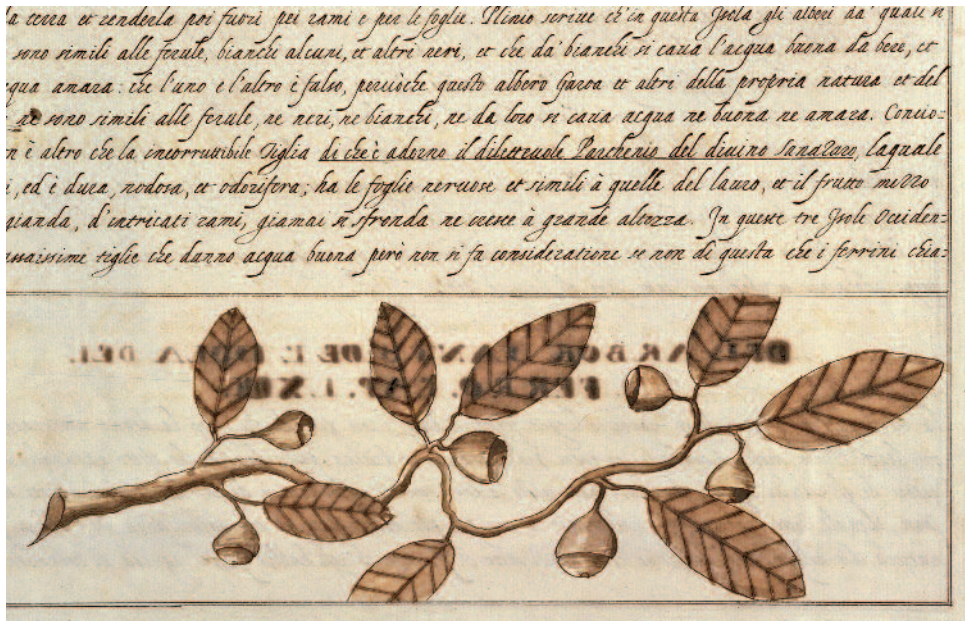 la terra et renderla poi fuori pei rami e per le foglie. Plinio scrive ch'in questa Isola gli alberi da' quali si
sono simili alle ferule, bianchi alcuni, et altri neri, et che da' bianchi si caua l'acqua buona da bere, et
qua amara: che l'uno e l'altro è falso, perciòche questo albero Garoa et altri della propria natura et del
ne sono simili alle ferule, ne neri, ne bianchi, ne da loro si caua acqua ne buona ne amara. Concio=
n è altro che la incorruttibile Tiglia di che è adorno il diletteuole Parthenio del diuino Sanazaro, laquale
i, ed è dura, nodosa, et odorifera; ha le foglie neruose et simili à quelle del lauro, et il frutto mezzo
gianda, d'intricati rami, giamai si sfronda ne cresce à grande altezza. In queste tre Isole Occiden=
assaissime tiglie che danno acqua buona però non si fa consideratione se non di questa che i ferrini chia=
DELL'ARBOR SANTO DE L'ISOLA DEL
FERRO. CAP. LXIII